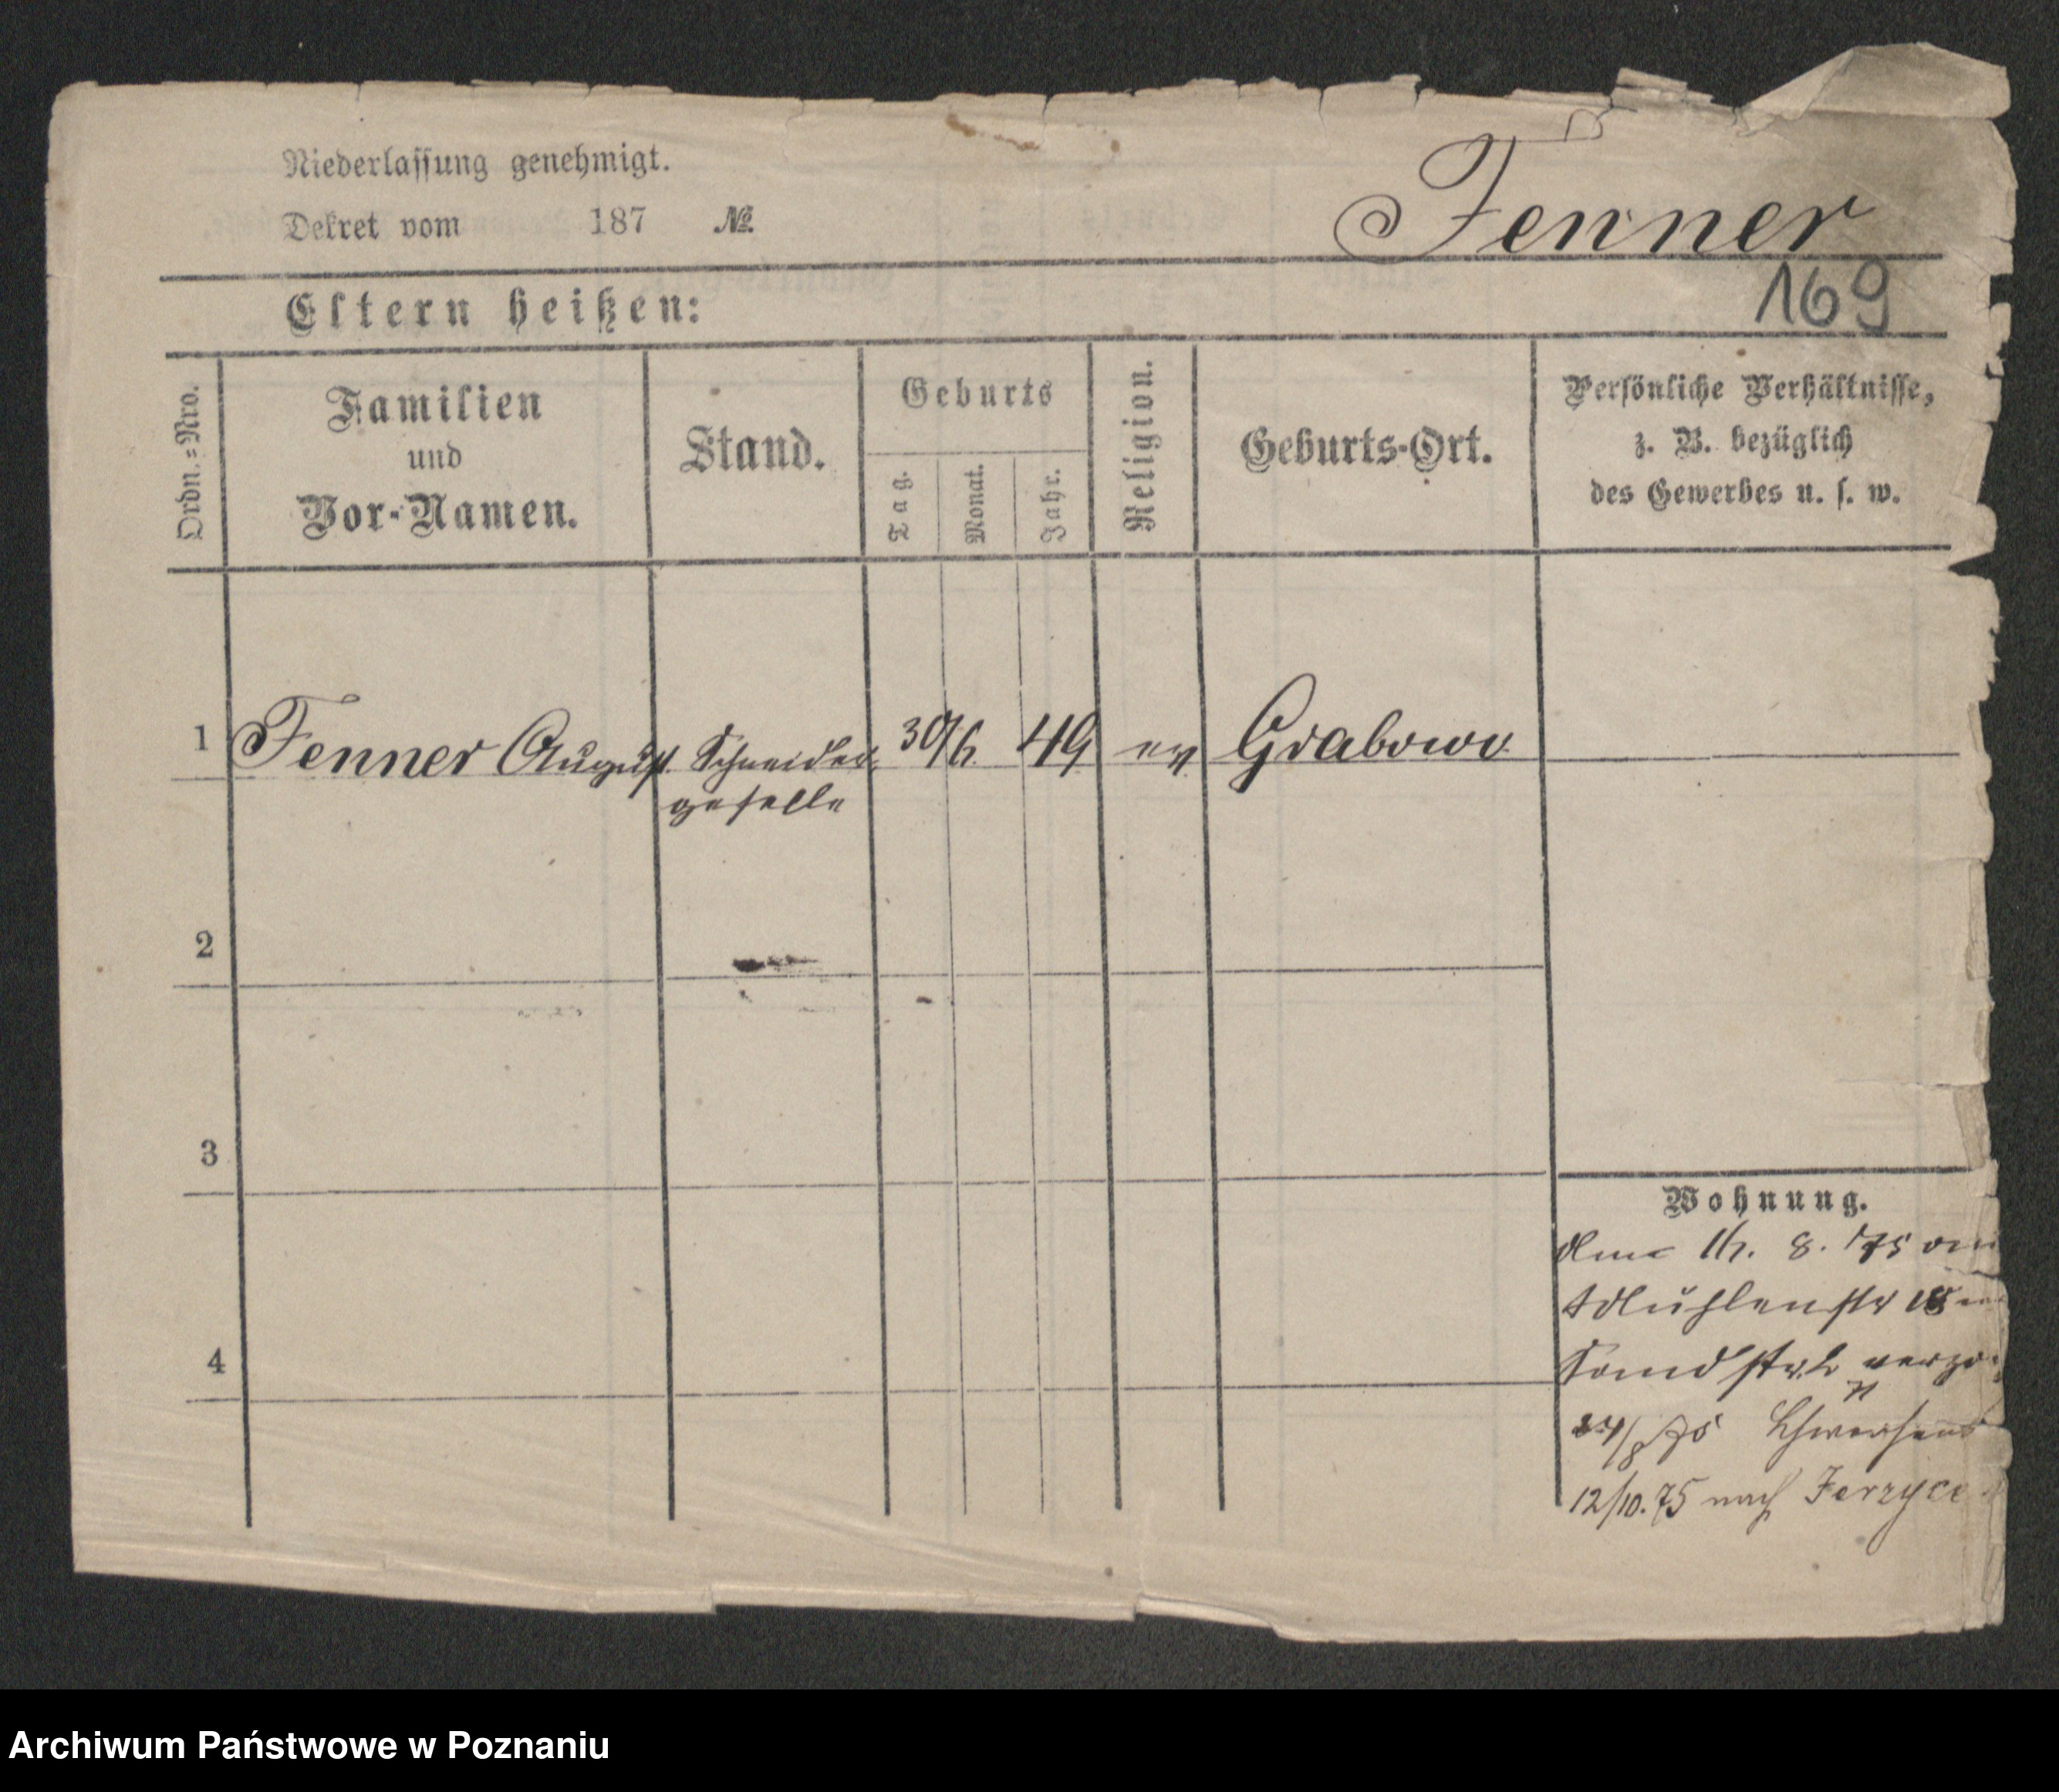 Niederlassung genehmigt.
Dekret vom 187 №
Fenner
169
Eltern heißen:
Ordn.=Nro.
Familien
und
Vor-Namen.
Stand.
Geburts
Tag.
Monat.
Jahr.
Religion.
Geburts-Ort.
Persönliche Verhältnisse,
z. B. bezüglich
des Gewerbes u. s. w.
1 Fenner August Schneider 30/6. 49 ev Grabowo
geselle
2
3
4
Wohnung.
8. 75
Mühlenstr
verzo
75 Schwersenz
12/10. 75 nach Jerzyce
Archiwum Państwowe w Poznaniu